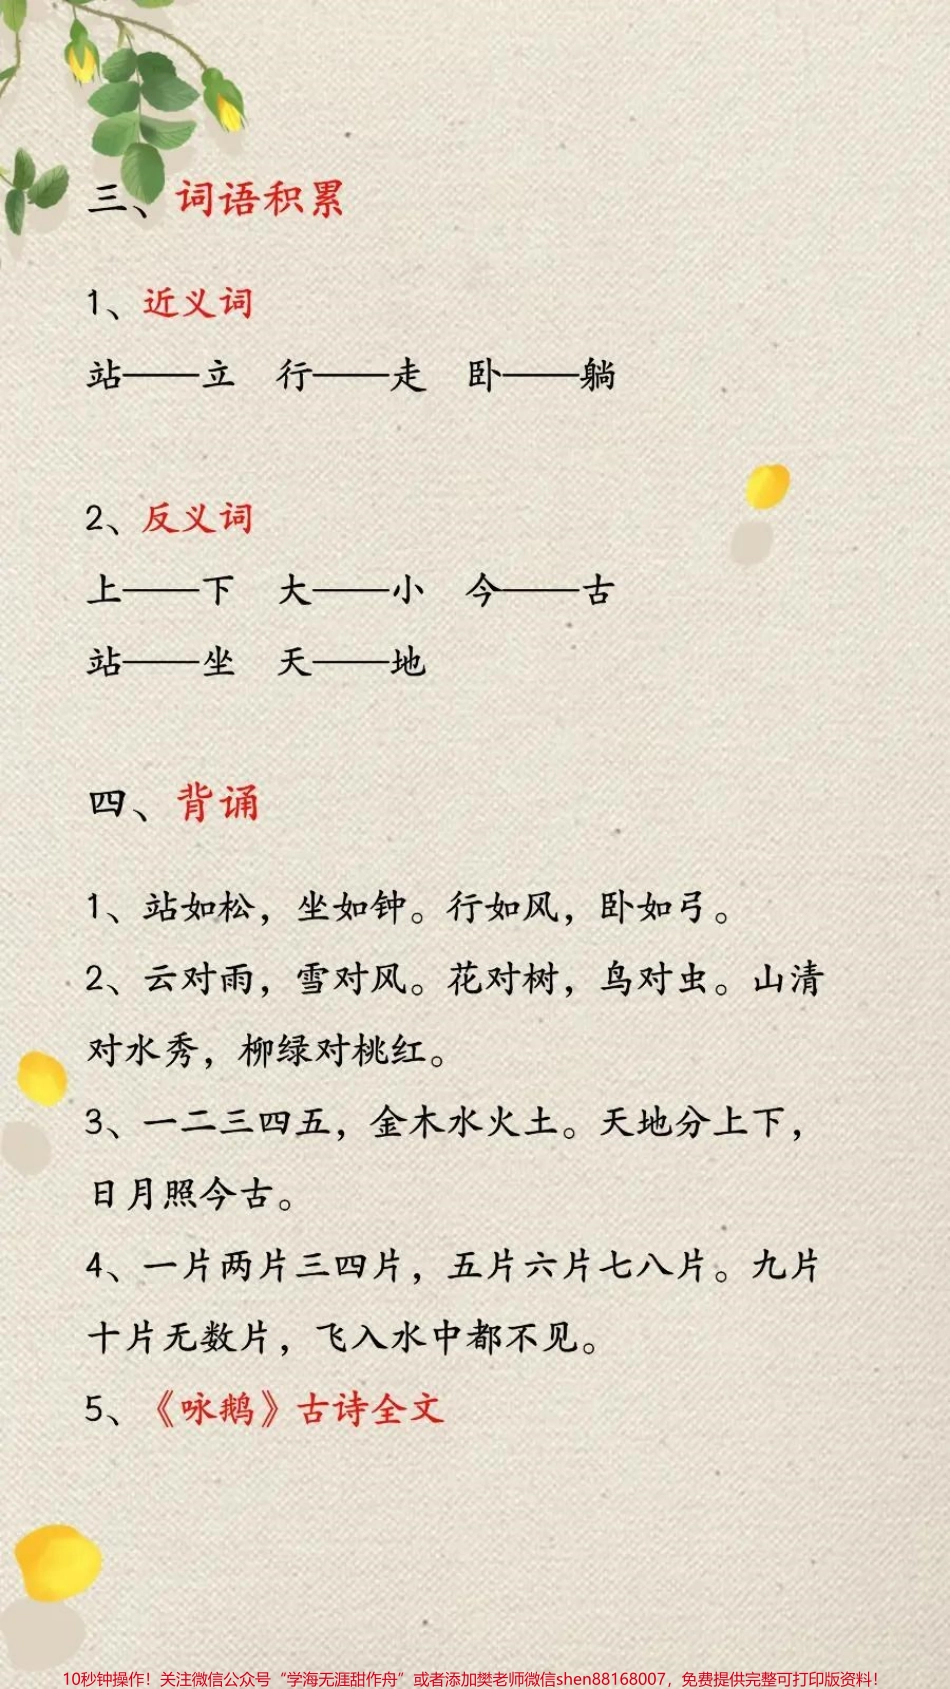 三、词语积累
1、近义词
站——立 行——走 卧——躺
2、反义词
上——下 大——小 今——古
站——坐 天——地
四、背诵
1、站如松，坐如钟。行如风，卧如弓。
2、云对雨，雪对风。花对树，鸟对虫。山清
对水秀，柳绿对桃红。
3、一二三四五，金木水火土。天地分上下，
日月照今古。
4、一片两片三四片，五片六片七八片。九片
十片无数片，飞入水中都不见。
5、《咏鹅》古诗全文
10秒钟操作！关注微信公众号“学海无涯甜作舟”或者添加樊老师微信shen88168007，免费提供完整可打印版资料！